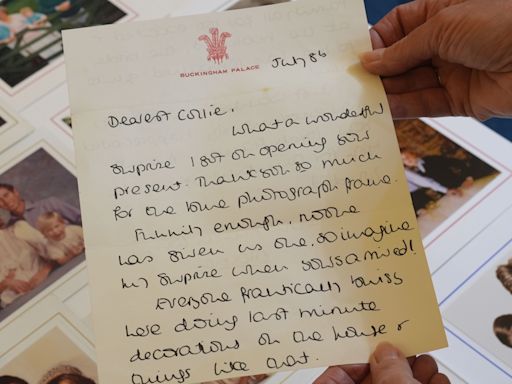 BUCKINGHAM PALACE
July 86
Dearest Collie,
What a wonderful
surprize I got on opening your
present. Thank you so much
for the lovely photograph frame.
Funnily enough, no one
has given us one, so imagine
my surprize when yours arrived!
Everyone frantically busy
here doing last minute
decorations on the house &
things like that.